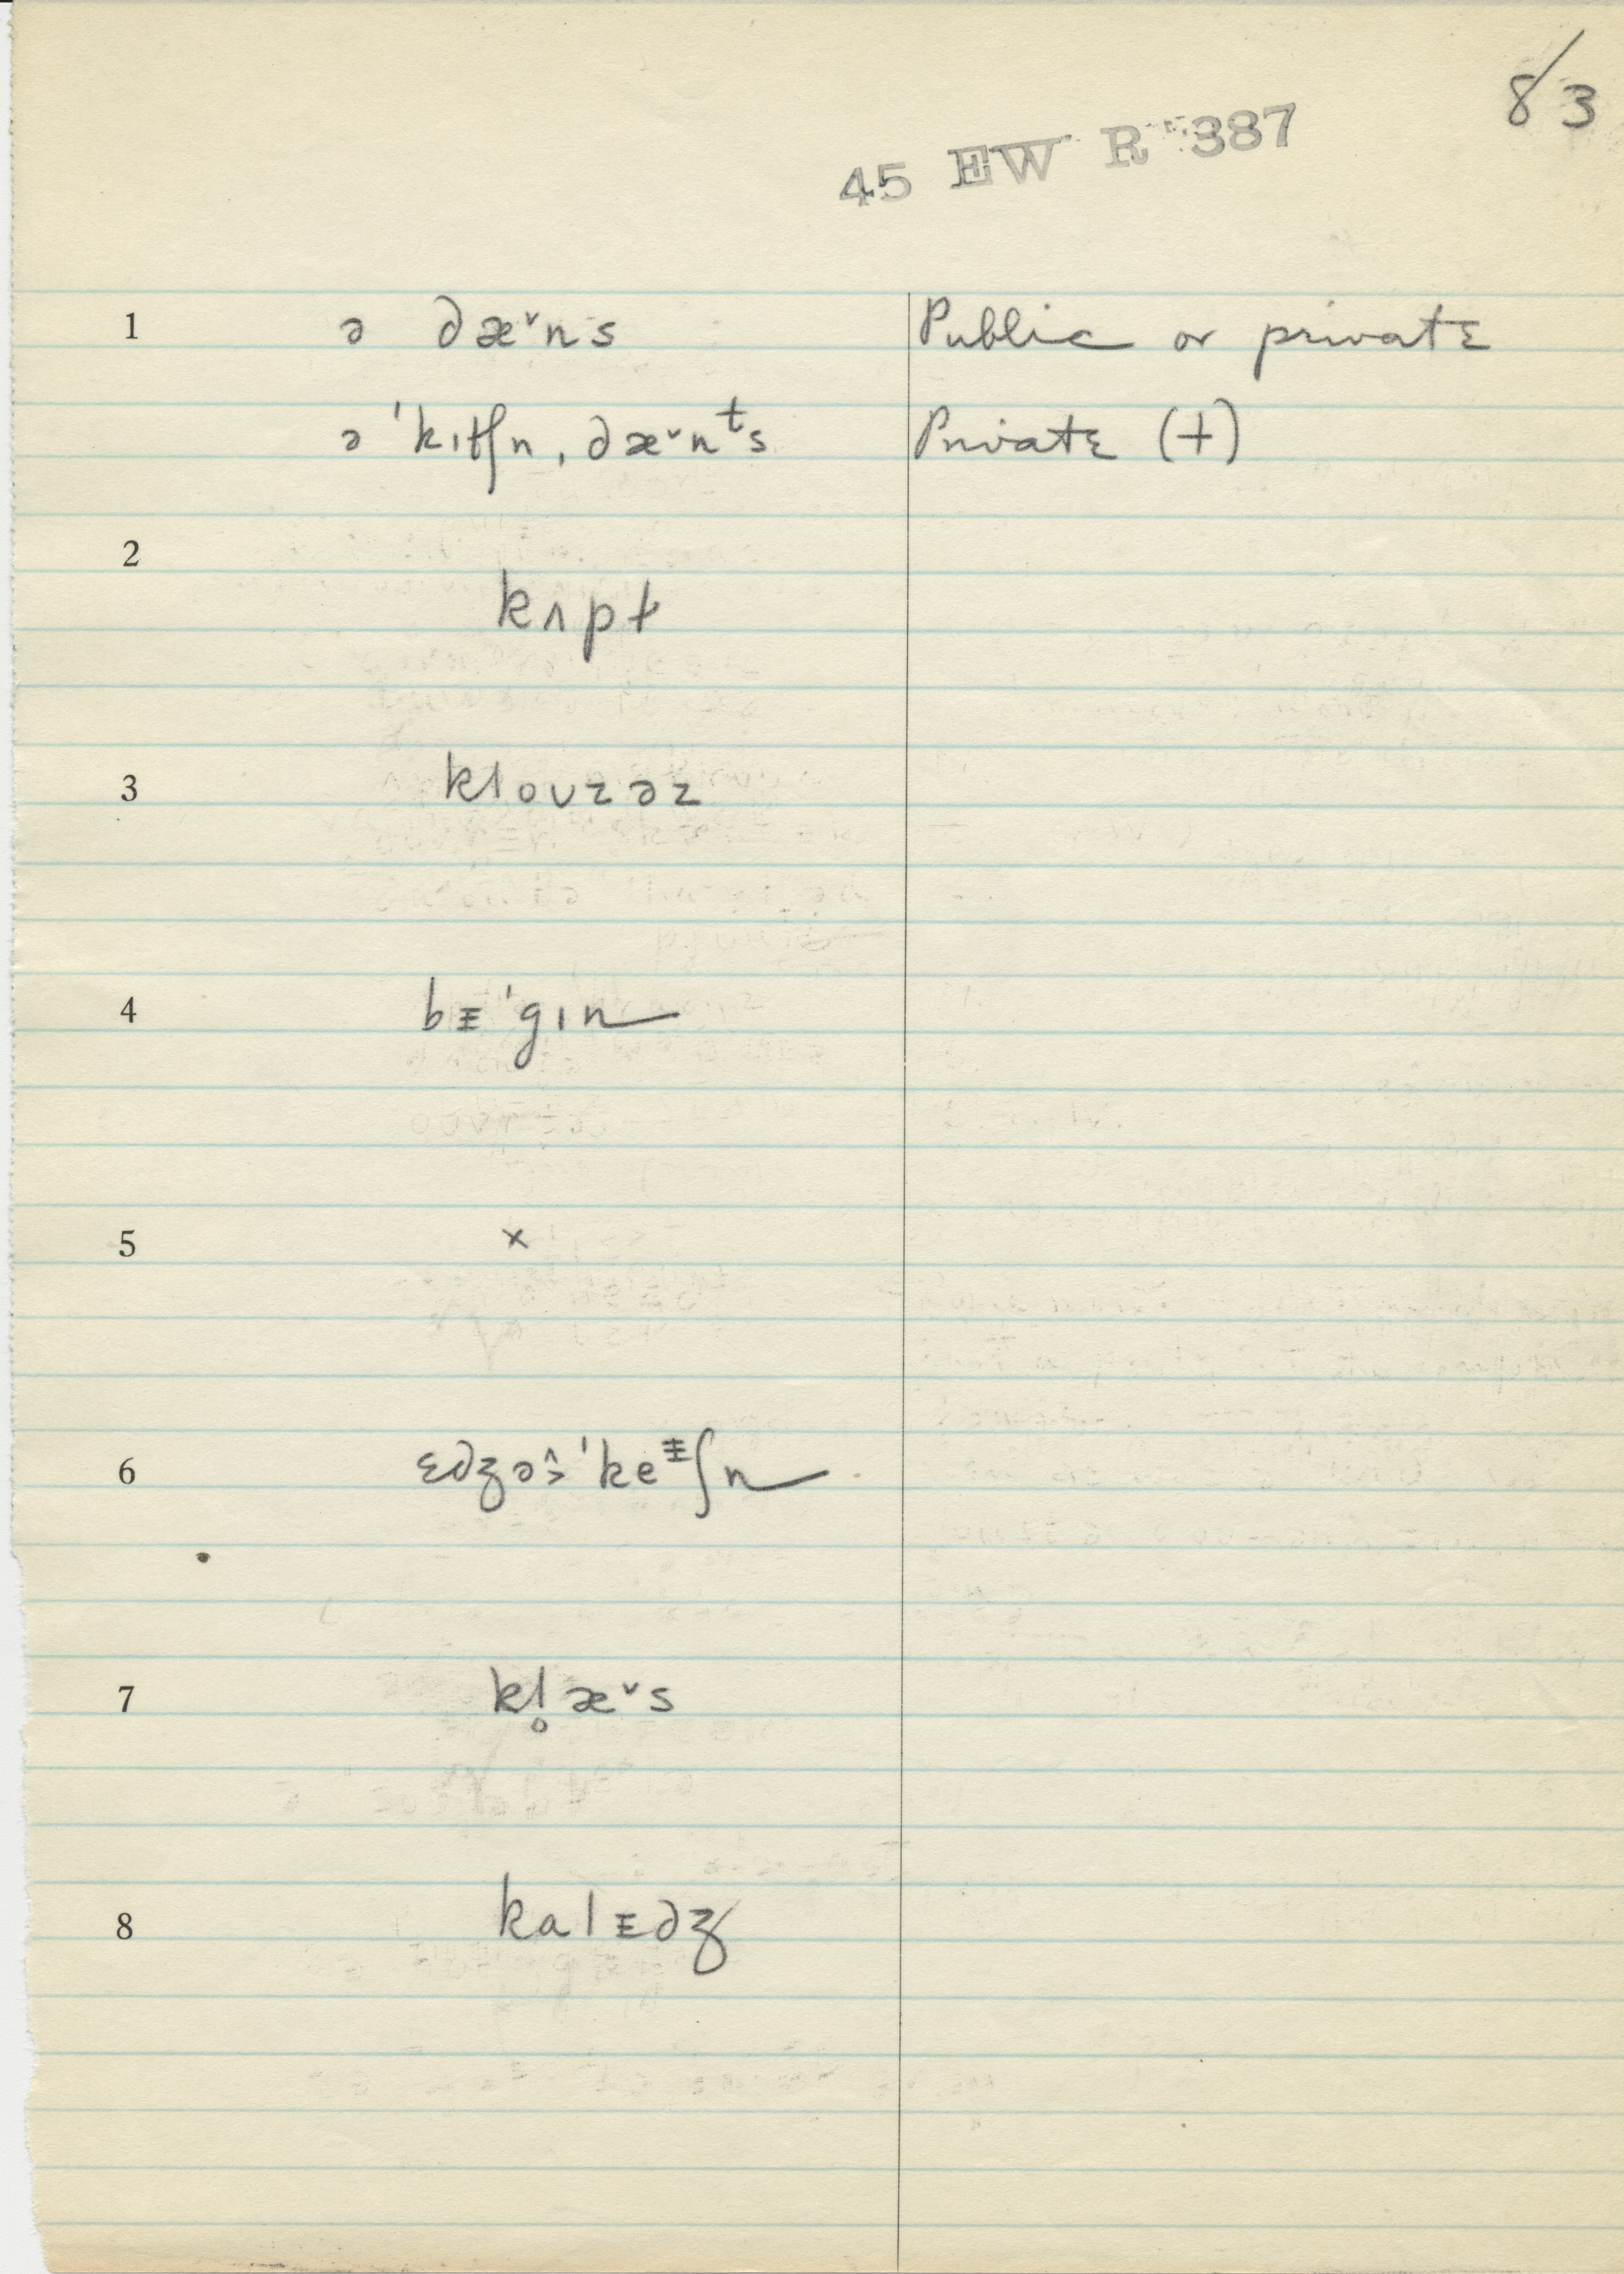 8/3
45 EW R 387
1 ə dæ˅ns Public or private
ə ˈkɪtʃn ˌdæ˅nᵗs Private (+)
2
kʌpt
3 kloʊzəz
4 bᵻˈgɪn
5 ×
6 ɛdʒə˄˃ˈkeᵻʃn
7 kl̥æ˅s
8 kalᵻdʒ